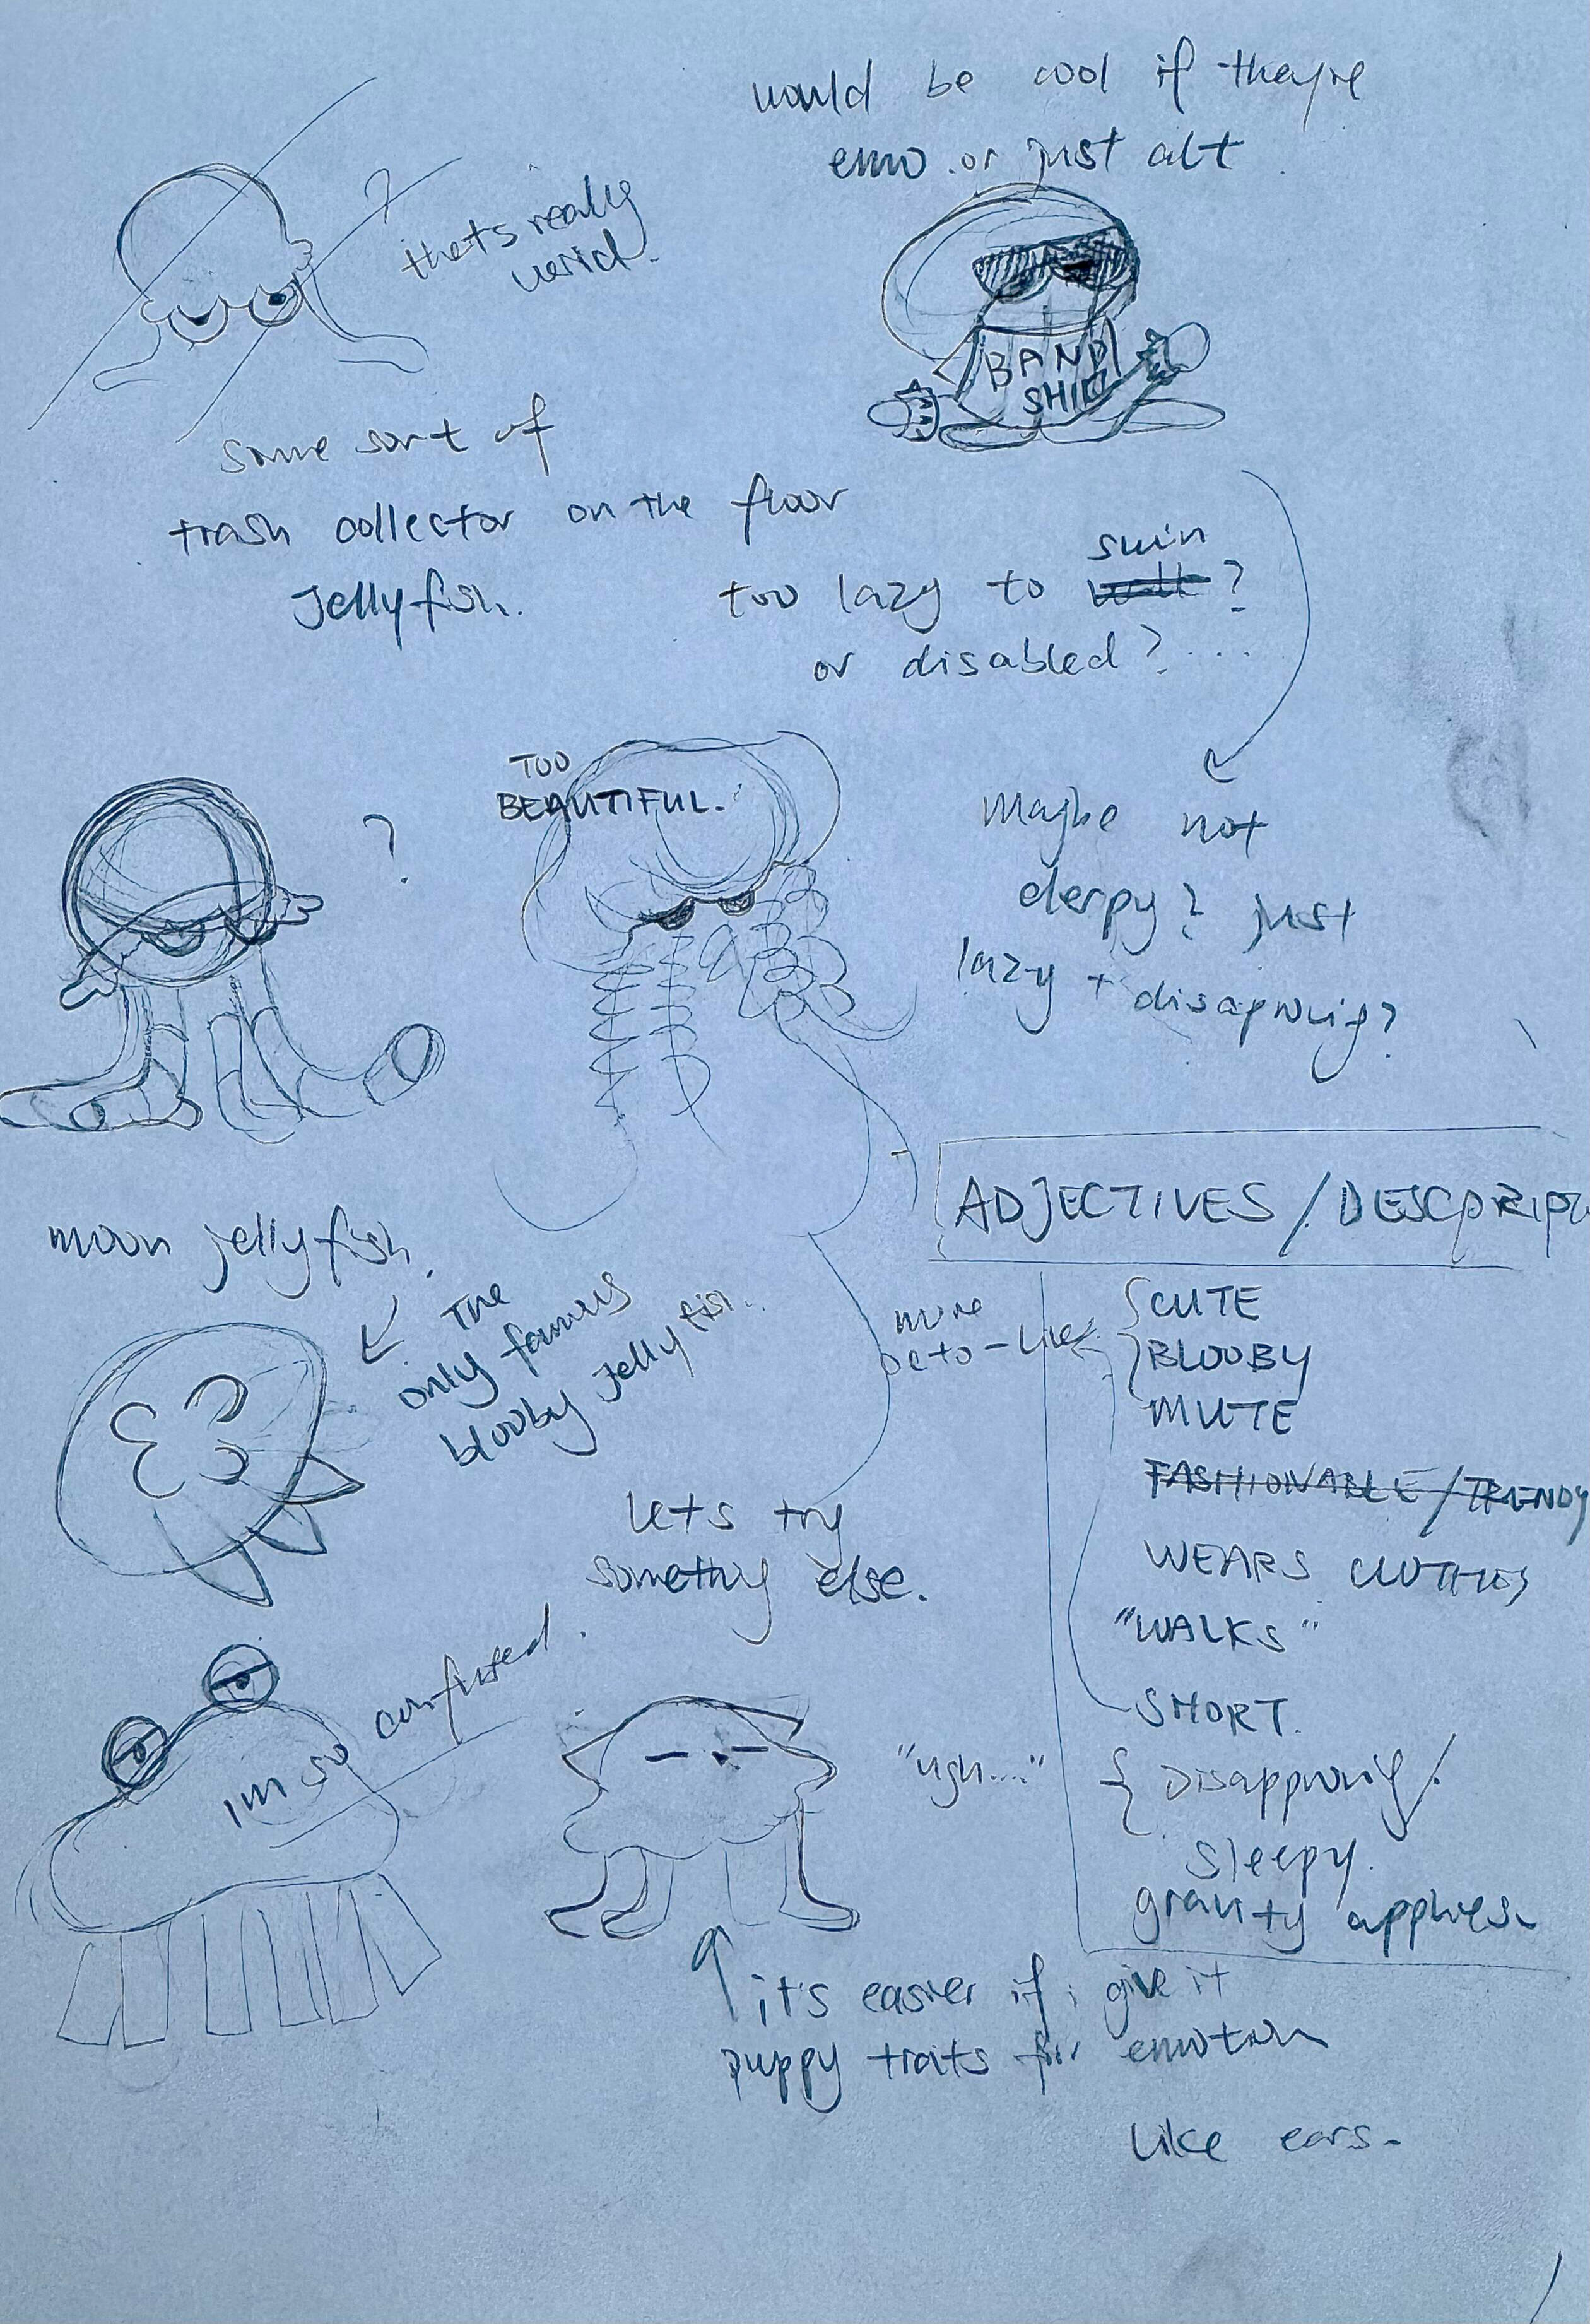 would be cool if they're
emo or just alt
?
thats really
weird.
BAND
SHIRT
some sort of
trash collector on the floor
Jellyfish.
swim
too lazy to walk?
or disabled?...
TOO
BEAUTIFUL.
?
Maybe not
derpy? just
lazy + disaproving?
moon jellyfish.
The
only famous
blooby jelly fish..
more
octo-like
lets try
something else.
im so confused.
"ugh...."
ADJECTIVES / DESCPRIP
CUTE
BLOOBY
MUTE
FASHIONABLE/TRENDY
WEARS CLOTHES
"WALKS"
SHORT.
Disapproving/
Sleepy.
gravity applies.
it's easier if i give it
puppy traits for emotion
like ears.